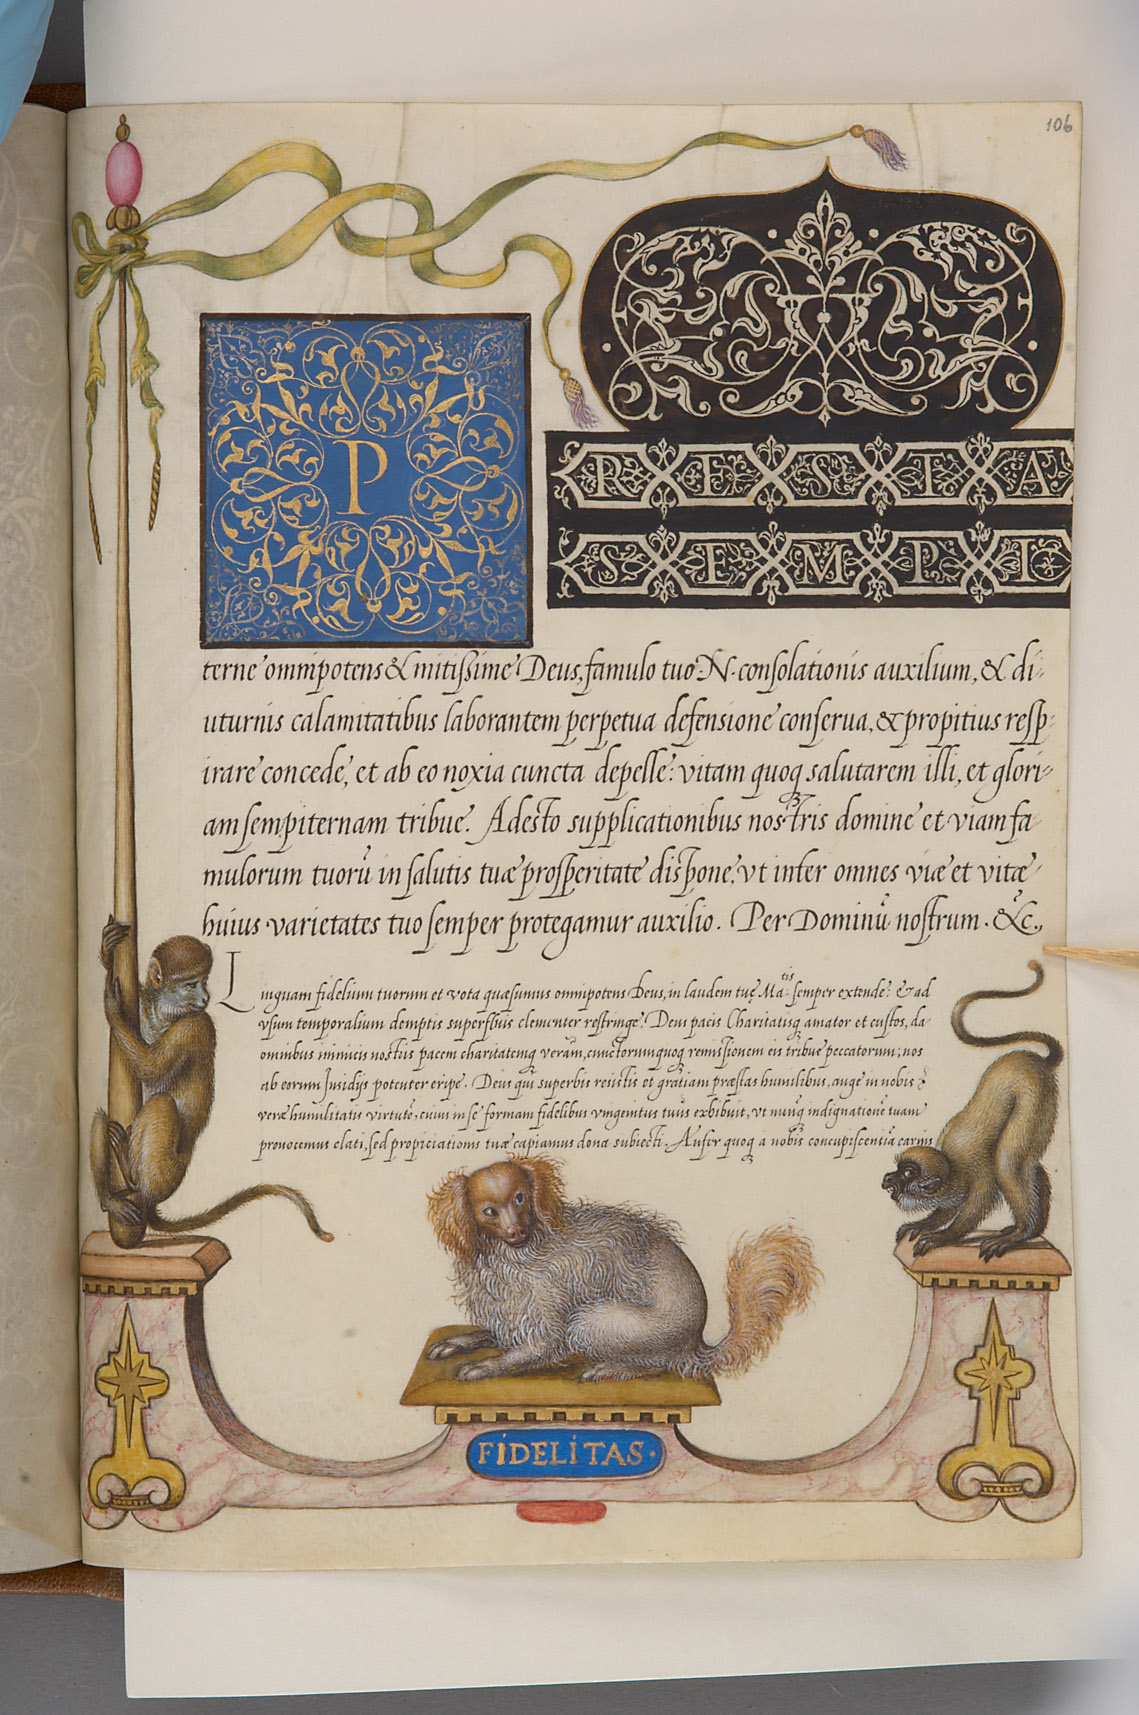 106
P
RESTA
SEMPI
terne omnipotens & mitissime Deus, famulo tuo .N. consolationis auxilium, & di-
uturnis calamitatibus laborantem perpetua defensione conserua, & propitius resp-
irare concede, et ab eo noxia cuncta depelle: vitam quoq salutarem illi, et glori-
am sempiternam tribue. Adesto supplicationibus nostris domine et viam fa-
mulorum tuorū in salutis tuæ prosperitate dispone, vt inter omnes viæ et vitæ
huius varietates tuo semper protegamur auxilio. Per Dominū nostrum. &c.,
Linguam fidelium tuorum et vota quæsumus omnipotens Deus, in laudem tuę Ma:tis semper extende: & ad
vsum temporalium demptis superfluis clementer restringe. Deus pacis Charitatisq amator et custos, da
omnibus inimicis nostris pacem charitatemq veram, cunctorumquoq remissionem eis tribue peccatorum; nos
ab eorum Insidijs potenter eripe. Deus qui superbis resistis et gratiam præstas humilibus, auge in nobis
veræ humilitatis virtutē, cuius in se formam fidelibus vnigenitus tuus exhibuit, vt nunq indignationē tuam
prouocemus elati, sed propiciationis tuæ capiamus dona subiecti. Aufer quoq à nobis concupiscentiā carnis
FIDELITAS.